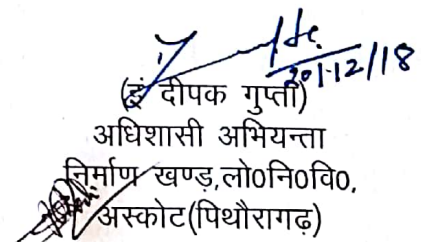 20/12/18
(इं दीपक गुप्ता)
अधिशासी अभियन्ता
निर्माण खण्ड,लो0नि0वि0,
अस्कोट(पिथौरागढ़)